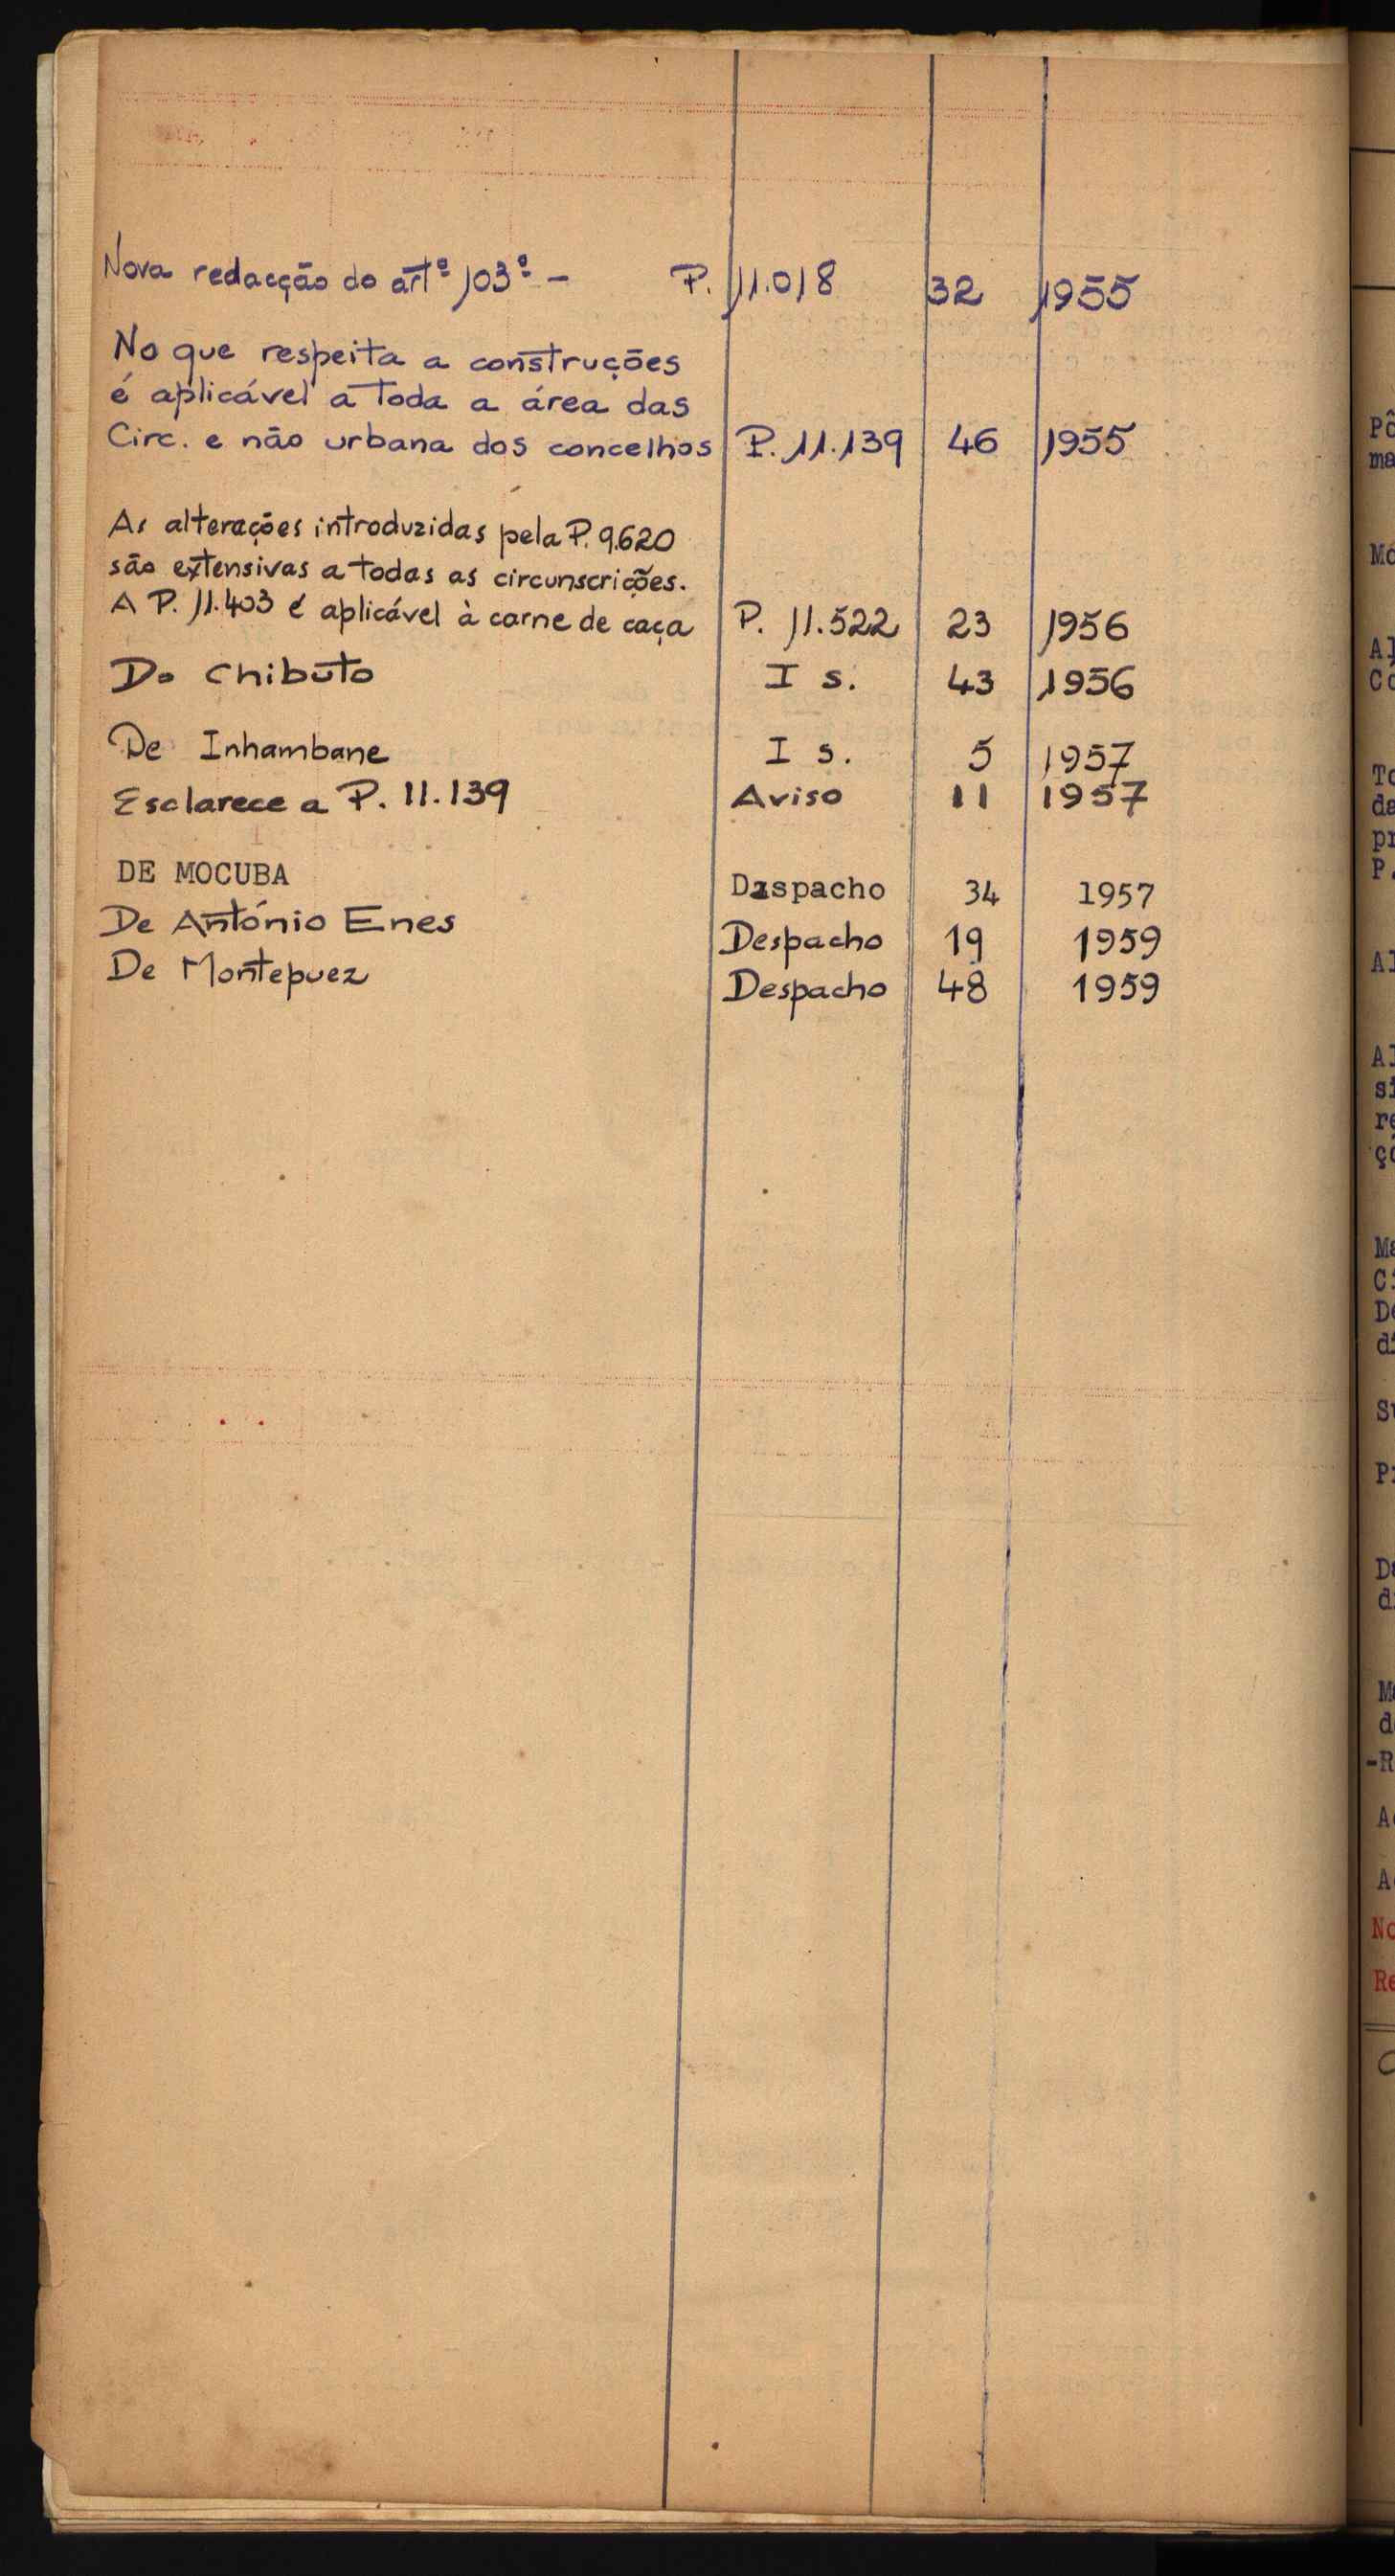 Nova redacção do artº 103º - P. 11.018 32 1955
No que respeita a construções
é aplicável a toda a área das
Circ. e não urbana dos concelhos P. 11.139 46 1955
As alterações introduzidas pela P. 9.620
são extensivas a todas as circunscrições.
A P. 11.403 é aplicável à carne de caça P. 11.522 23 1956
Do Chibuto I s. 43 1956
De Inhambane I s. 5 1957
Esclarece a P. 11.139 Aviso 11 1957
DE MOCUBA Despacho 34 1957
De António Enes Despacho 19 1959
De Montepuez Despacho 48 1959